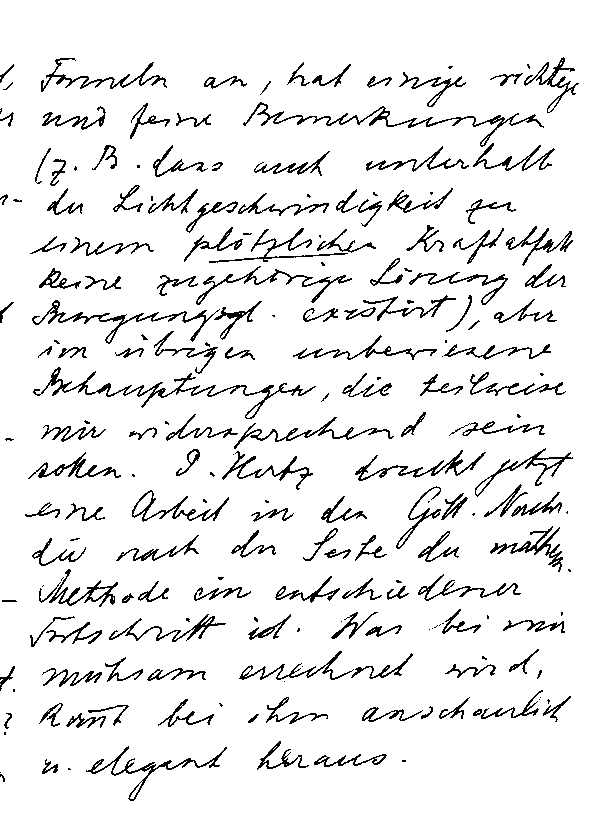 Formeln an, hat einige richtige
und feine Bemerkungen
(z. B. dass auch unterhalb
der Lichtgeschwindigkeit zu
einem plötzlichen Kraftabfall
keine zugehörige Lösung der
Bewegungsgl. existirt), aber
im übrigen unbewiesene
Behauptungen, die teilweise
mir widersprechend sein
sollen. P. Hertz druckt jetzt
eine Arbeit in den Gött. Nachr.
die nach der Seite der mathem.
Methode ein entschiedener
Fortschritt ist. Was bei mir
mühsam errechnet wird,
kommt bei ihm anschaulich
u. elegant heraus.